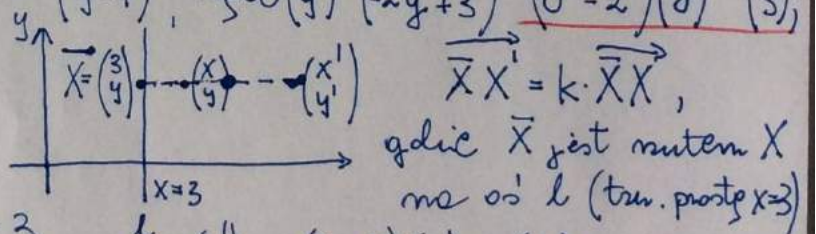 -2y+3) (0 -2)
y
X̄=(3 y) (x y) (x' y') X̄X' = k·X̄X,
gdzie X̄ jest rzutem X
x=3 na oś l (tzw. prostą x=3)